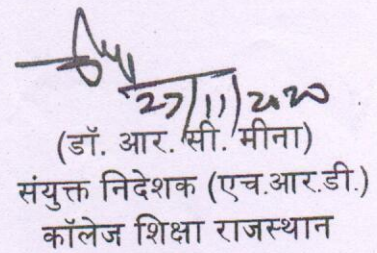 27/11/2020
(डॉ. आर. सी. मीना)
संयुक्त निदेशक (एच.आर.डी.)
कॉलेज शिक्षा राजस्थान